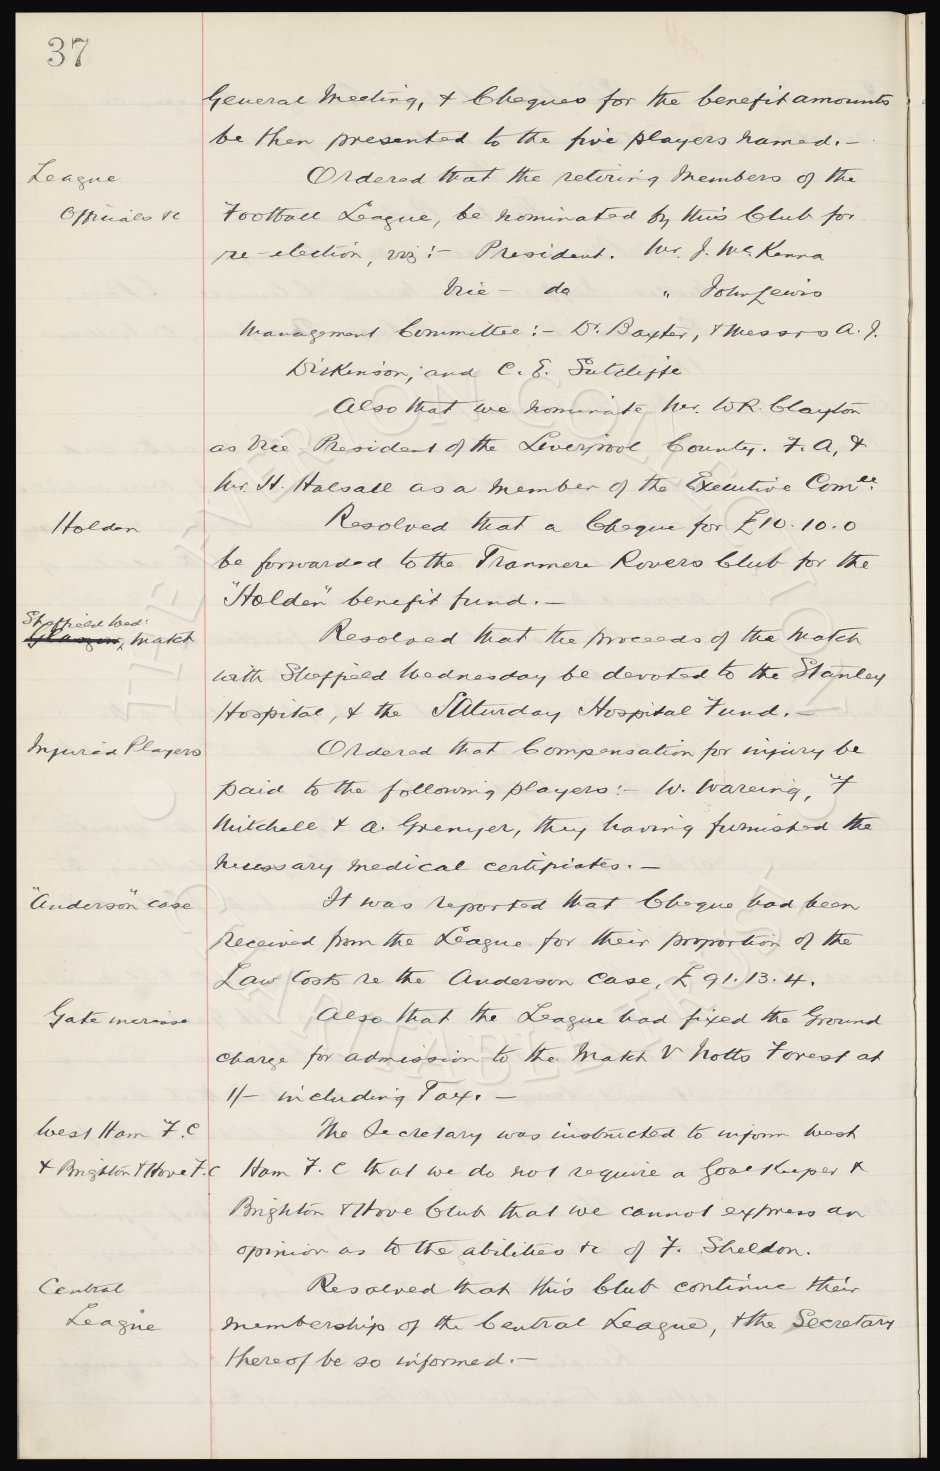 37
General Meeting, & Cheques for the benefit amounts
be then presented to the five players named.—
League
Officials &c
Ordered that the retiring Members of the
Football League, be nominated by this Club for
re-election, viz:— President. Mr. J. McKenna
Vice - do " John Lewis
Management Committee:— Dr. Baxter, & Messrs A. J.
Dickenson, and C. E. Sutcliffe
Also that we nominate Mr. W R. Clayton
as Vice President of the Liverpool County. F. A, &
Mr. H. Halsall as a member of the Executive Comee.
Holden
Resolved that a Cheque for £10.10.0
be forwarded to the Tranmere Rovers Club for the
"Holden" benefit fund.—
Sheffield Wed:
Match
Resolved that the proceeds of the Match
with Sheffield Wednesday be devoted to the Stanley
Hospital, & the Saturday Hospital Fund.—
Injured Players
Ordered that Compensation for injury be
paid to the following players:— W. Wareing, F
Mitchell & A. Grenyer, they having furnished the
necessary medical certificates.—
"Anderson" case
It was reported that Cheque had been
received from the League for their proportion of the
Law Costs re the Anderson Case, £91.13.4.
Gate increase
Also that the League had fixed the Ground
charge for admission to the Match V Notts Forest at
1/- including Tax.—
West Ham F.C
& Brighton & Hove F.C
The Secretary was instructed to inform West
Ham F.C that we do not require a Goal Keeper &
Brighton & Hove Club that we cannot express an
opinion as to the abilities &c of F. Sheldon.
Central
League
Resolved that this Club continue their
membership of the Central League, & the Secretary
thereof be so informed.—
THE EVERTON COLLECTION
CHARITABLE TRUST